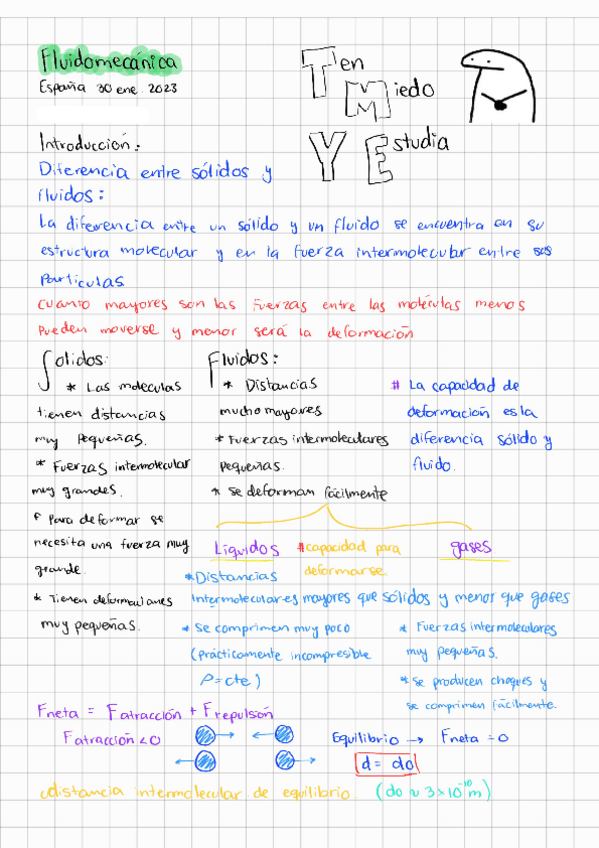 Fluidomecánica
España 30 ene. 2023
Ten
Miedo
Y Estudia
Introducción:
Diferencia entre sólidos y
fluidos:
La diferencia entre un sólido y un fluido se encuentra en su
estructura molecular y en la fuerza intermolecular entre sus
partículas
Cuanto mayores son las fuerzas entre las moléculas menos
pueden moverse y menor será la deformación
Solidos:
* Las moleculas
tienen distancias
muy pequeñas.
* Fuerzas intermolecular
muy grandes.
* Para deformar se
necesita una fuerza muy
grande.
* Tienen deformaciones
muy pequeñas.
Fluidos:
* Distancias
mucho mayores
* Fuerzas intermoleculares
pequeñas.
* Se deforman fácilmente
# La capacidad de
deformación es la
diferencia sólido y
fluido.
Líquidos
#capacidad para
deformarse.
gases
* Distancias
Intermoleculares mayores que sólidos y menor que gases
* Se comprimen muy poco
(prácticamente incompresible
ρ=cte)
* Fuerzas intermoleculares
muy pequeñas.
* Se producen choques y
se comprimen fácilmente.
Fneta = Fatracción + Frepulsión
Fatracción<0
Equilibrio → Fneta = 0
d = do
distancia intermolecular de equilibrio. (do ~ 3×10⁻¹⁰ m)